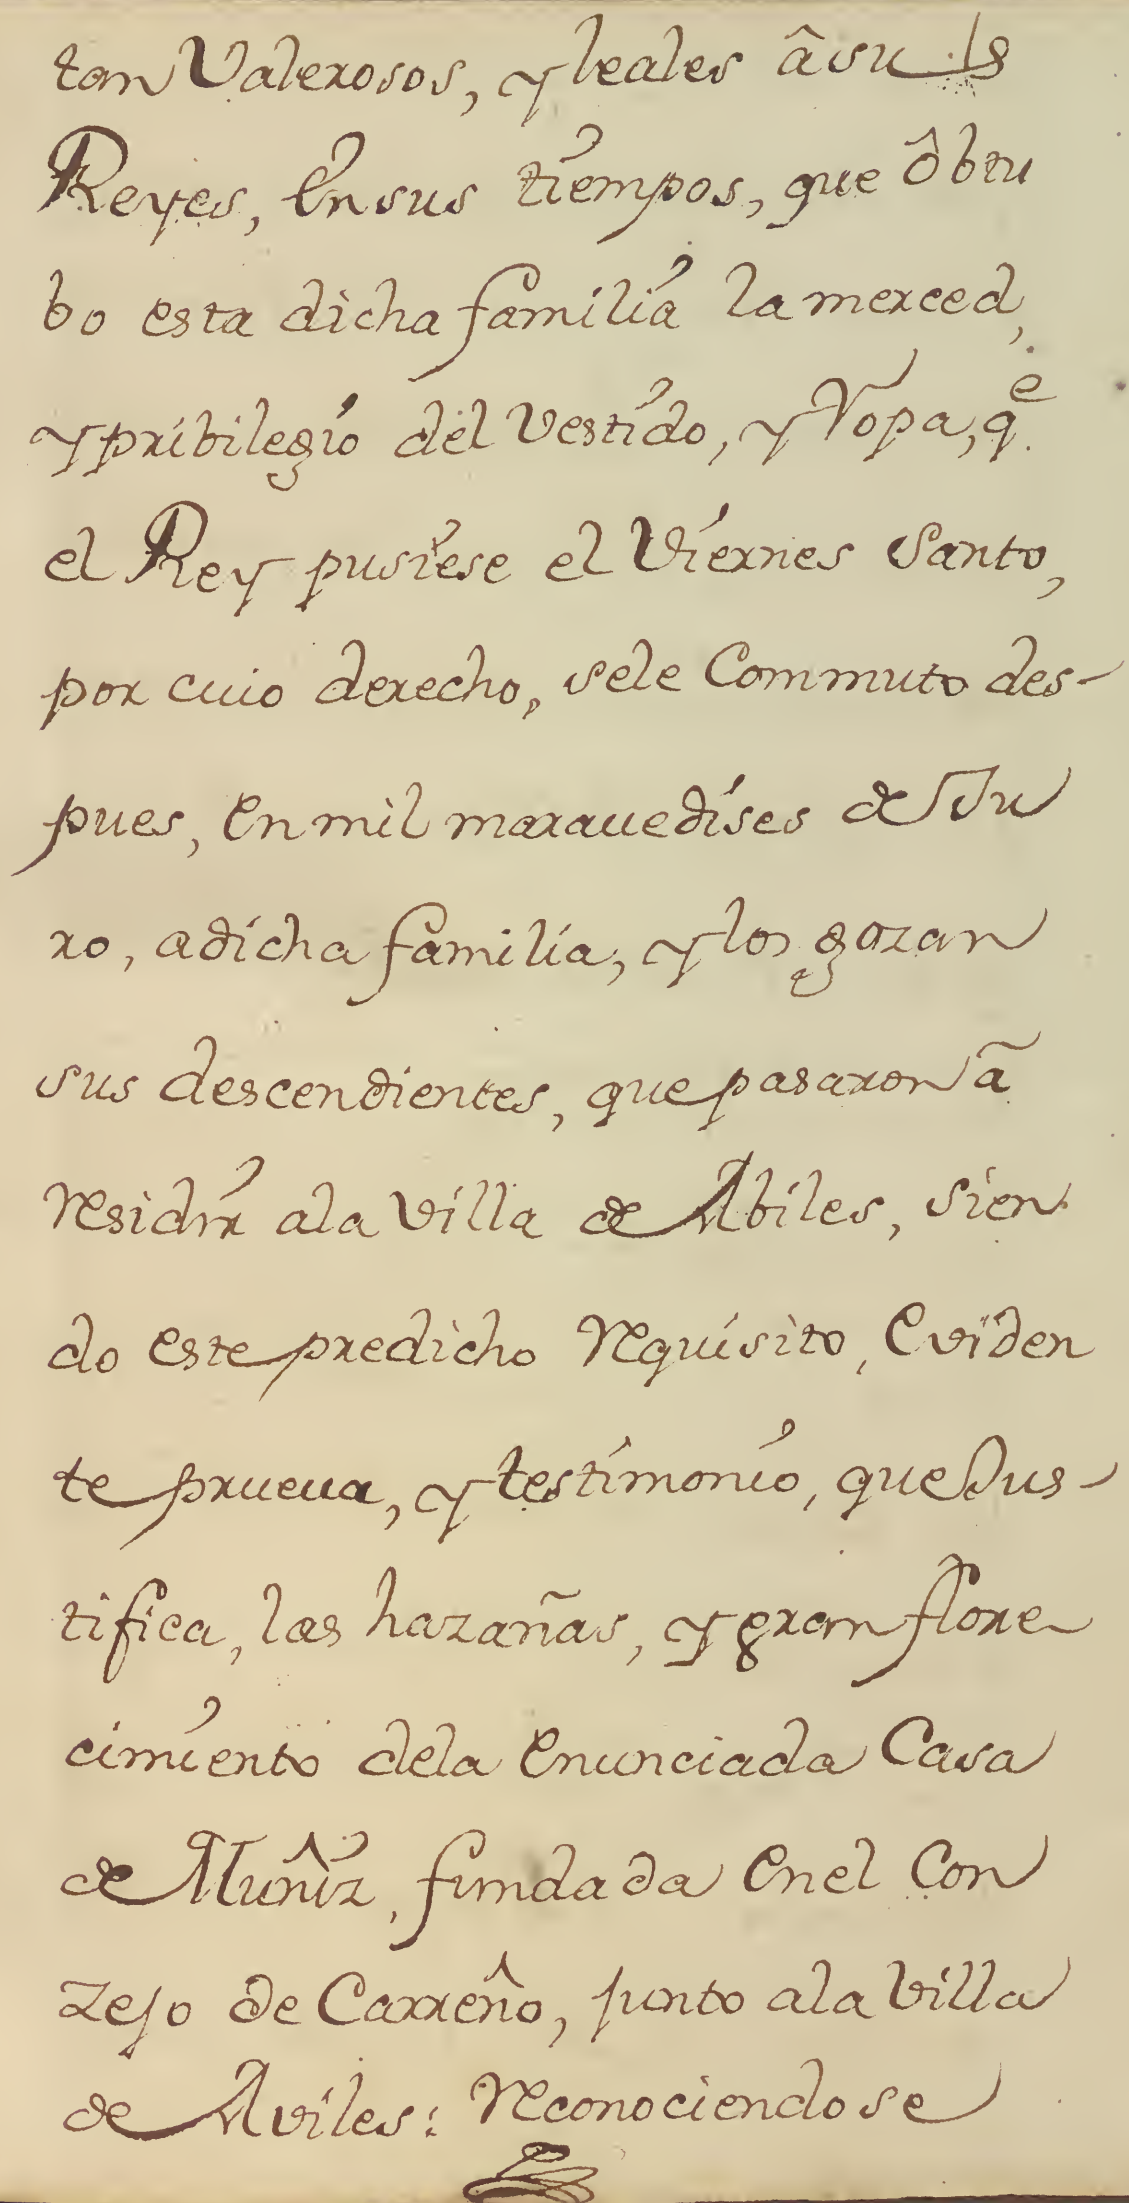 tan Valerosos, y leales âsus
Reyes, Ensus tiempos, que ôbtu
bo esta dicha familia la merced,
y pribilegio del Vestido, y Ropa, q.e
el Rey pusiese el Viernes Santo,
por cuio derecho, sele Commuto des-
pues, En mil marauedises de Ju
ro, adicha familia, y los gozan
sus descendientes, que pasaron â
residir ala villa de Abiles, sien
do este predicho requisito, Eviden
te prueua, y testimonio, que Jus-
tifica, las hazañas, y gran flore
cimiento dela Enunciada Casa
de Muñiz, fundada Enel Con
zejo de Carreño, junto ala Villa
de Aviles: reconociendose